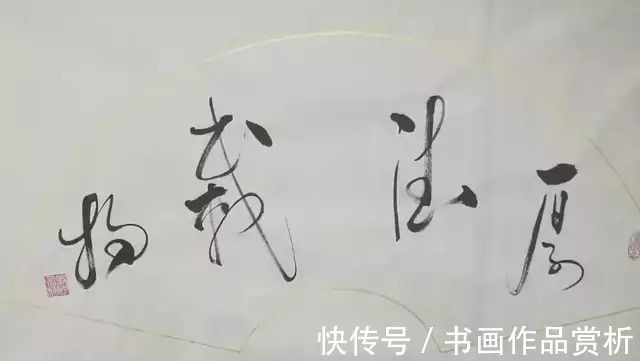 厚德载物
快传号 / 书画作品赏析